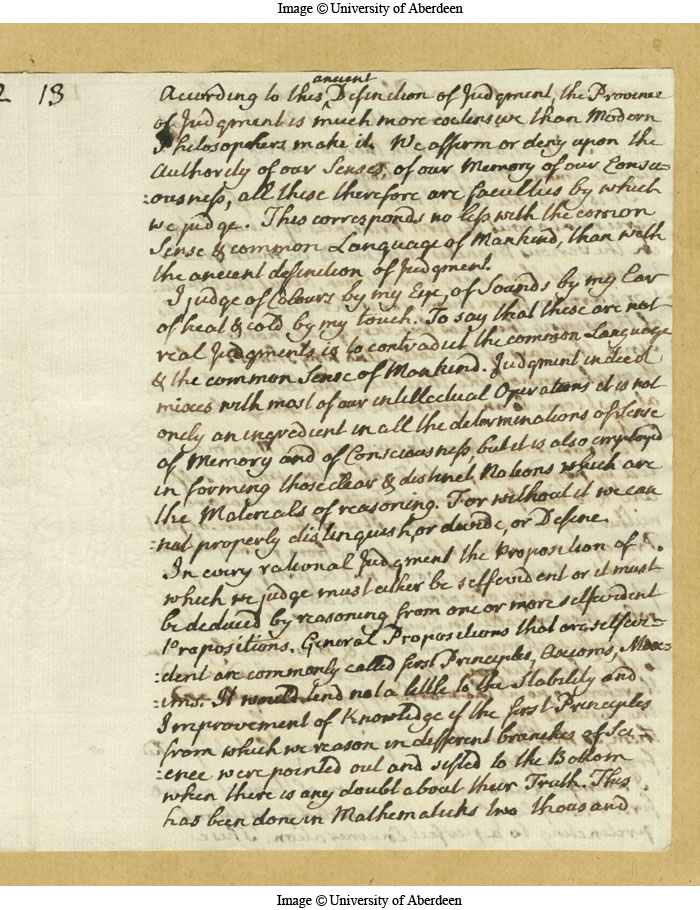 Image © University of Aberdeen
2 13
ancient
According to this ^ Definition of Judgment, the Province
of Judgment is much more extensive than Modern
Philosophers make it. We affirm or deny upon the
Authority of our Senses, of our Memory of our Consci=
=ousness, all these therefore are faculties by which
we judge. This corresponds no less with the common
Sense & common Language of Mankind, than with
the ancient definition of Judgment.
I judge of Colours by my Eye, of Sounds by my Ear
of heat & cold by my touch. To say that these are not
real Judgments is to contradict the common Language
& the common Sense of Mankind. Judgment indeed
mixes with most of our intellectual Operations it is not
only an ingredient in all the determinations of Sense
of Memory and of Consciousness, but it is also employd
in forming those clear & distinct Notions which are
the Materials of reasoning. For without it we can
=not properly distinguish, or divide, or Define.
In every rational Judgment the Proposition of
which we judge must either be selfevident or it must
be deduced by reasoning from one or more selfevident
Propositions. General Propositions that are selfevi=
=dent are commonly called first Principles, Axioms, Max=
=ims. It would tend not a little to the Stability and
Improvement of Knowledge if the first Principles
from which we reason in different branches of Sci=
=ence were pointed out and sifted to the Bottom
when there is any doubt about their Truth. This
has been done in Mathematicks two thousand
Image © University of Aberdeen